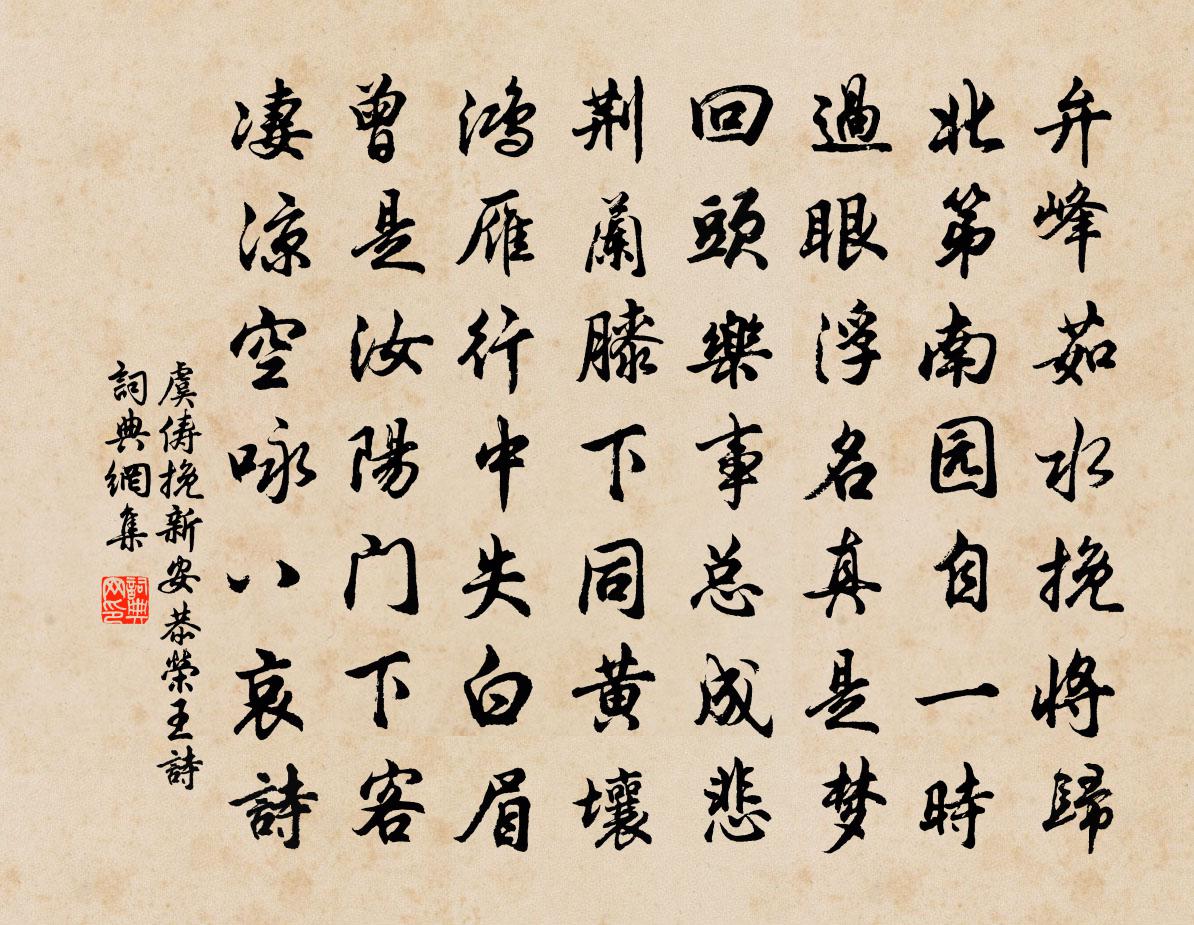 弁峰茹水挽將歸
北第南园自一時
過眼浮名真是梦
回頭樂事总成悲
荆蘭膝下同黄壤
鴻雁行中失白眉
曾是汝陽门下客
凄涼空咏八哀詩
虞儔挽新安恭榮王詩
詞典網集